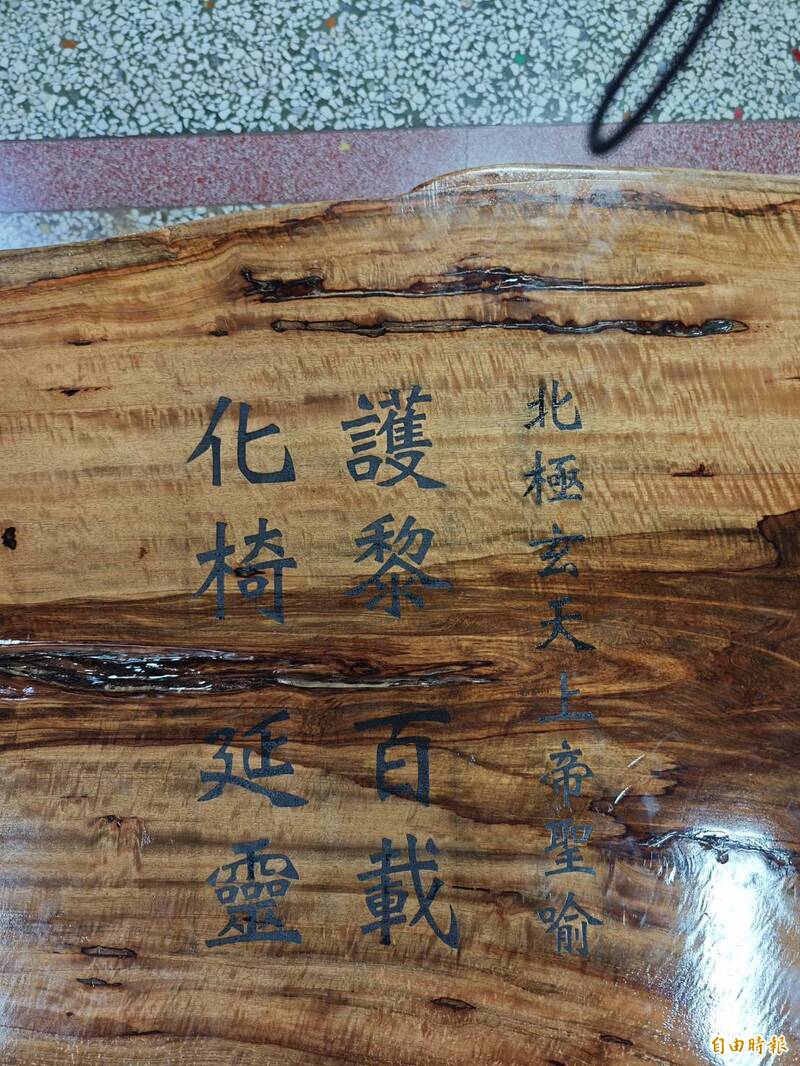 北極玄天上帝聖喻
護黎百載
化椅延靈
自由時報